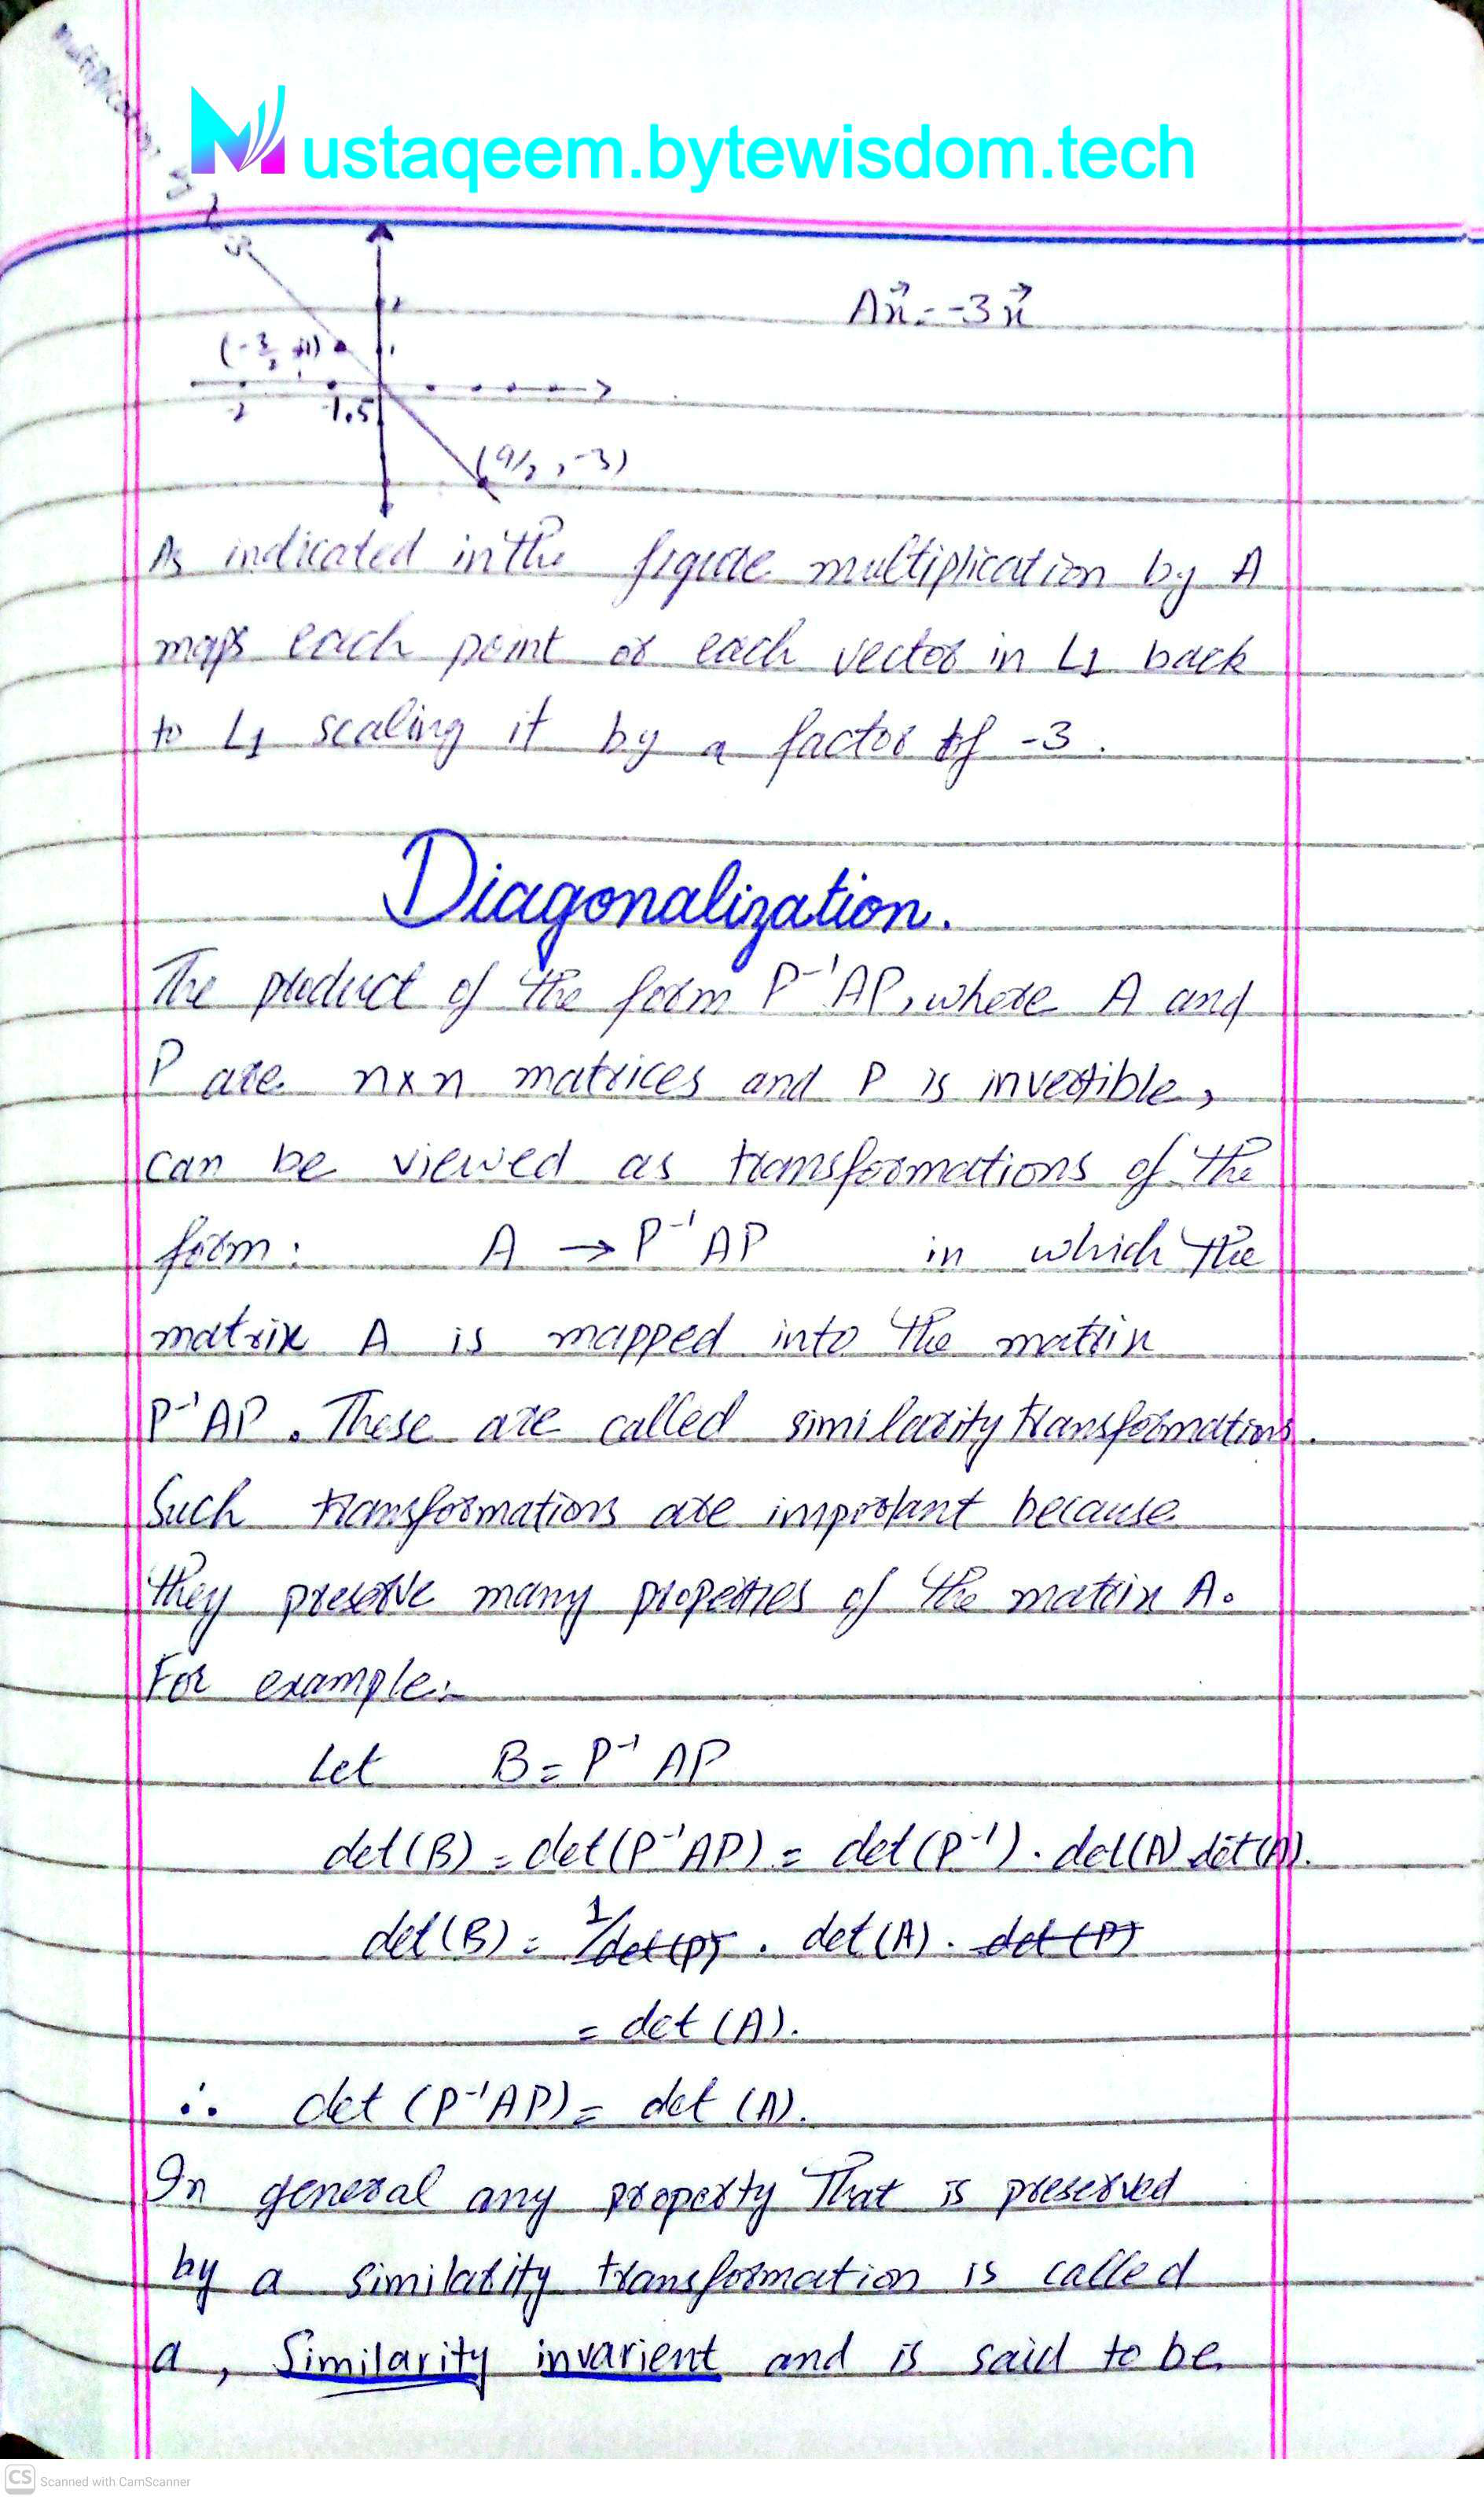 Multiplication by
-3
Mustaqeem.bytewisdom.tech
Ax⃗ = -3x⃗
2
(-3/2, +1) 1
-2 -1.5
(9/2, -3)
As indicated in the figure multiplication by A
maps each point or each vector in L1 back
to L1 scaling it by a factor of -3.
Diagonalization.
The product of the form P⁻¹AP, where A and
P are n×n matrices and P is invertible,
can be viewed as transformations of the
form: A → P⁻¹AP in which the
matrix A is mapped into the matrix
P⁻¹AP. These are called similarity transformations.
Such transformations are improtant because
they preserve many properties of the matrix A.
For example:-
Let B = P⁻¹AP
det(B) = det(P⁻¹AP) = det(P⁻¹) . det(A) det(A).
det(B) = 1/det(P) . det(A) . det(P)
= det(A).
∴ det(P⁻¹AP) = det(A).
In general any property That is preserved
by a similarity transformation is called
a, Similarity invarient and is said to be
CS Scanned with CamScanner